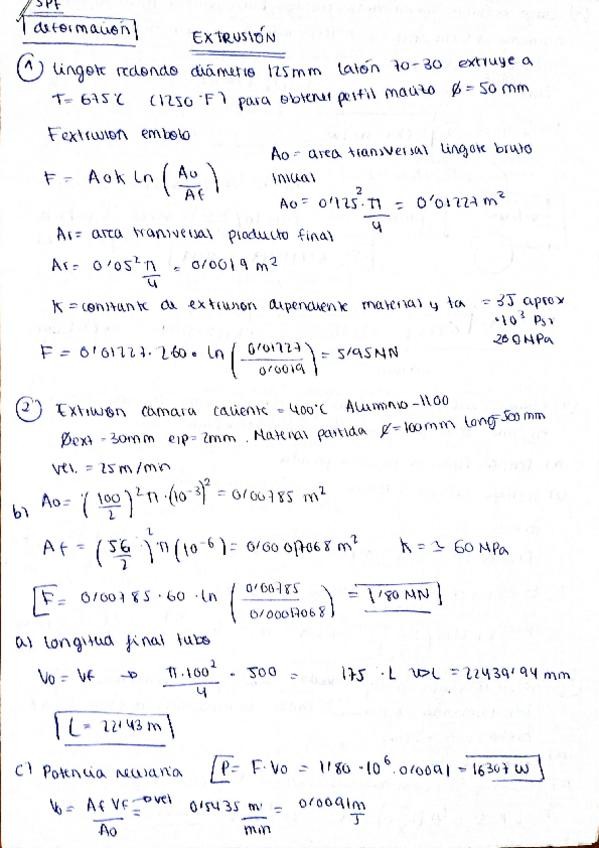 SPF
deformación
EXTRUSIÓN
① lingote redondo diámetro 125mm latón 70-30 extruye a
T= 675°C (1250°F) para obtener perfil macizo ø = 50 mm
Fextrusion embolo
Ao = area transversal lingote bruto
inicial
F = Ao k ln (Ao/Af)
Ao = 0'125²·π/4 = 0'01227 m²
Af = area tranversal producto final
Af = 0'05² π/4 = 0'0019 m²
K = constante de extrusion dependiente material y ta = 35 aprox
·10³ Psi
260 MPa
F = 0'01227·260· ln (0'01227/0'0019) = 5'95 MN
② Extrusión camara caliente = 400°C Aluminio-1100
Øext = 30mm esp = 2mm. Material partida ø = 100mm long = 500 mm
vel. = 25 m/min
b) Ao = (100/2)² π·(10⁻³)² = 0'00785 m²
Af = (56/2)² π (10⁻⁶) = 0'00017068 m² K = 60 MPa
F = 0'00785·60·ln (0'00785/0'00017068) = 1'80 MN
a) longitud final tubo
Vo = Vf → π·100²/4 · 500 = 175 · L => L = 22439'94 mm
L = 22'43 m
c) Potencia necesaria P = F·Vo = 1'80·10⁶·0'0091 = 16307 W
Vo = Af Vf/Ao = 0'5435 m/min = 0'0091 m/s